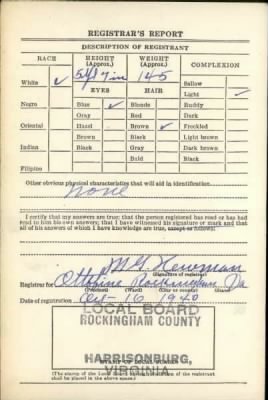 REGISTRAR'S REPORT
DESCRIPTION OF REGISTRANT
RACE HEIGHT (Approx.) WEIGHT (Approx.) COMPLEXION
White ✓ 5 ft 7 in 145 Sallow
EYES HAIR Light ✓
Negro Blue ✓ Blonde Ruddy
Gray Red Dark
Oriental Hazel Brown ✓ Freckled
Brown Black Light brown
Indian Black Gray Dark brown
Bald Black
Filipino
Other obvious physical characteristics that will aid in identification
none
I certify that my answers are true; that the person registered has read or has had
read to him his own answers; that I have witnessed his signature or mark and that
all of his answers of which I have knowledge are true, except as follows:
Newman
(Signature of registrar)
Registrar for Ottobine Rockingham Va
(Precinct) (Ward) (City or county) (State)
Date of registration Oct-16 1940
LOCAL BOARD
ROCKINGHAM COUNTY
HARRISONBURG,
VIRGINIA
(The stamp of the Local Board of the registrant
shall be placed in the above space.)